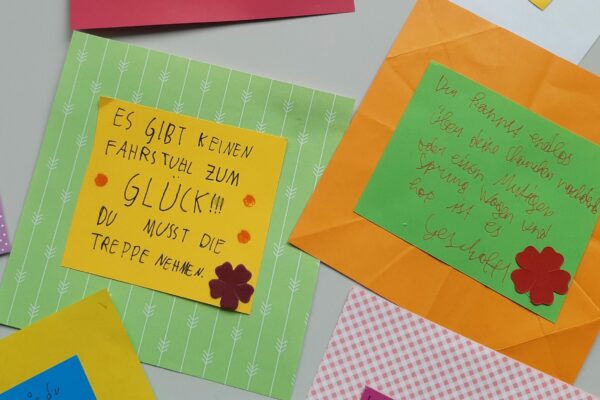 ES GIBT KEINEN
FAHRSTUHL ZUM
GLÜCK!!!
DU MUSST DIE
TREPPE NEHMEN.
Du kannst endlos
Über deine Chancen nachdenken
oder einen Mutigen
Sprung wagen und
hop ist es
Geschafft